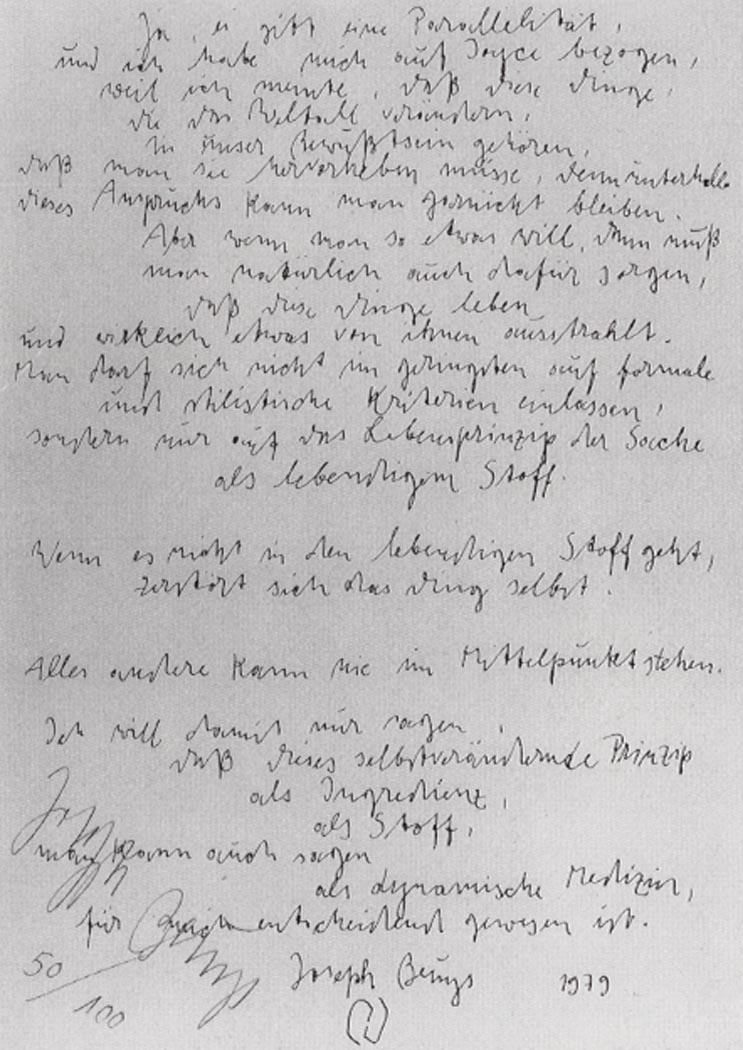 Ja, es gibt eine Parallelität,
und ich habe mich auf Joyce bezogen,
weil ich meinte, daß diese Dinge,
die das Weltall verändern,
in unser Bewußtsein gehören,
daß man sie hervorheben müsse, denn unterhalb
dieses Anspruchs kann man garnicht bleiben.
Aber wenn man so etwas will, dann muß
man natürlich auch dafür sorgen,
daß diese Dinge leben
und wirklich etwas von ihnen ausstrahlt.
Man darf sich nicht im geringsten auf formale
und stilistische Kriterien einlassen,
sondern nur auf das Lebensprinzip der Sache
als lebendigem Stoff.
Wenn es nicht in den lebendigen Stoff geht,
zerstört sich das Ding selbst.
Alles andere kann nie im Mittelpunkt stehen.
Ich will damit nur sagen,
daß dieses selbstverändernde Prinzip
als Ingredienz,
als Stoff,
man kann auch sagen
als dynamische Medizin,
für mich entscheidend gewesen ist.
Joseph Beuys 1979
50/100